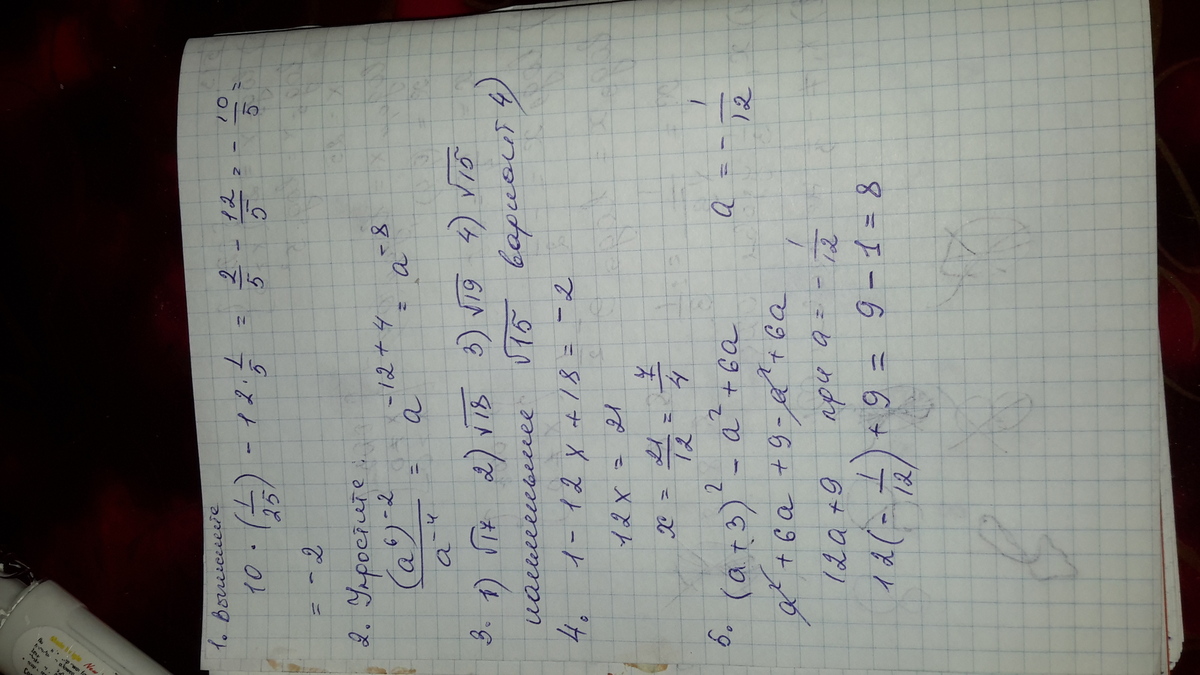 1. Вычислите
10 · (1/25) - 12 · 1/5 = 2/5 - 12/5 = - 10/5 =
= - 2
2. Упростите
(a⁶)⁻²/a⁻⁴ = a⁻¹²⁺⁴ = a⁻⁸
3. 1) √17 2) √18 3) √19 4) √15
наименьшее √15 вариант 4)
4. 1 - 12x + 18 = - 2
12x = 21
x = 21/12 = 7/4
5. (a + 3)² - a² + 6a a = - 1/12
a² + 6a + 9 - a² + 6a
12a + 9 при a = - 1/12
12(- 1/12) + 9 = 9 - 1 = 8